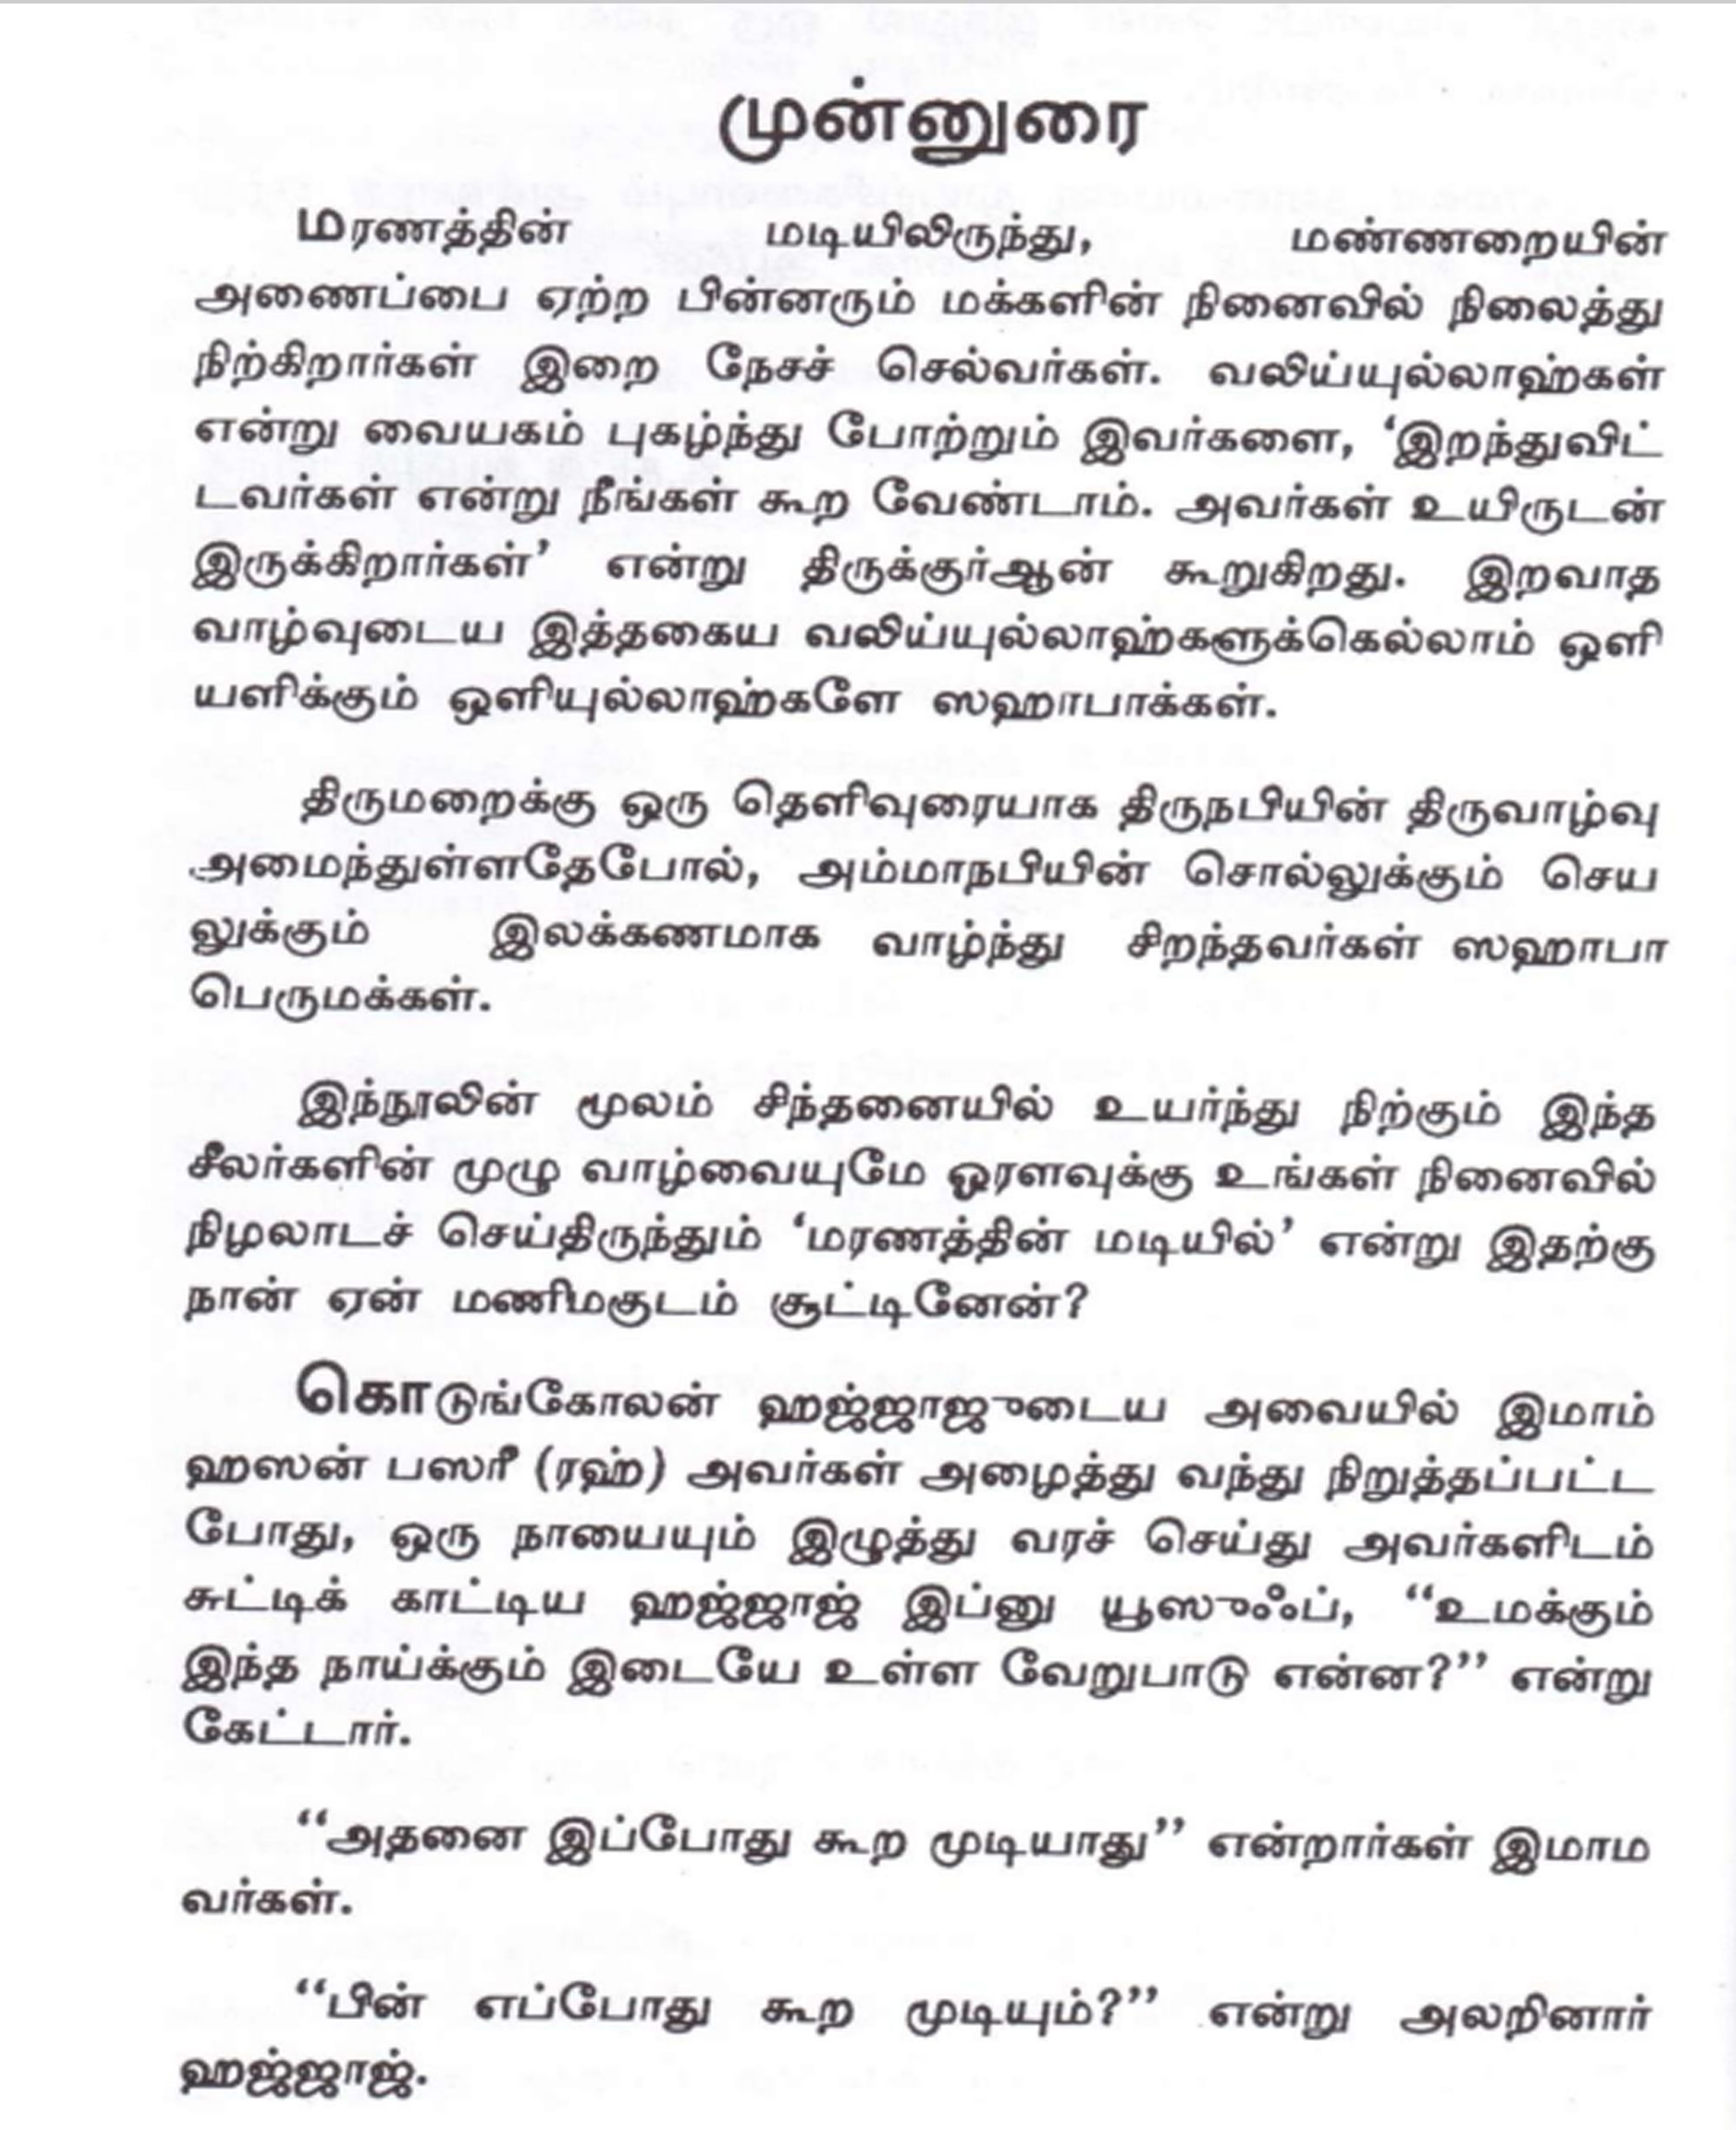 முன்னுரை
மரணத்தின் மடியிலிருந்து, மண்ணறையின்
அணைப்பை ஏற்ற பின்னரும் மக்களின் நினைவில் நிலைத்து
நிற்கிறார்கள் இறை நேசச் செல்வர்கள். வலிய்யுல்லாஹ்கள்
என்று வையகம் புகழ்ந்து போற்றும் இவர்களை, ‘இறந்துவிட்
டவர்கள் என்று நீங்கள் கூற வேண்டாம். அவர்கள் உயிருடன்
இருக்கிறார்கள்’ என்று திருக்குர்ஆன் கூறுகிறது. இறவாத
வாழ்வுடைய இத்தகைய வலிய்யுல்லாஹ்களுக்கெல்லாம் ஒளி
யளிக்கும் ஒளியுல்லாஹ்களே ஸஹாபாக்கள்.
திருமறைக்கு ஒரு தெளிவுரையாக திருநபியின் திருவாழ்வு
அமைந்துள்ளதேபோல், அம்மாநபியின் சொல்லுக்கும் செய
லுக்கும் இலக்கணமாக வாழ்ந்து சிறந்தவர்கள் ஸஹாபா
பெருமக்கள்.
இந்நூலின் மூலம் சிந்தனையில் உயர்ந்து நிற்கும் இந்த
சீலர்களின் முழு வாழ்வையுமே ஓரளவுக்கு உங்கள் நினைவில்
நிழலாடச் செய்திருந்தும் ‘மரணத்தின் மடியில்’ என்று இதற்கு
நான் ஏன் மணிமகுடம் சூட்டினேன்?
கொடுங்கோலன் ஹஜ்ஜாஜுடைய அவையில் இமாம்
ஹஸன் பஸரீ (ரஹ்) அவர்கள் அழைத்து வந்து நிறுத்தப்பட்ட
போது, ஒரு நாயையும் இழுத்து வரச் செய்து அவர்களிடம்
சுட்டிக் காட்டிய ஹஜ்ஜாஜ் இப்னு யூஸுஃப், “உமக்கும்
இந்த நாய்க்கும் இடையே உள்ள வேறுபாடு என்ன?” என்று
கேட்டார்.
“அதனை இப்போது கூற முடியாது” என்றார்கள் இமாம
வர்கள்.
“பின் எப்போது கூற முடியும்?” என்று அலறினார்
ஹஜ்ஜாஜ்.